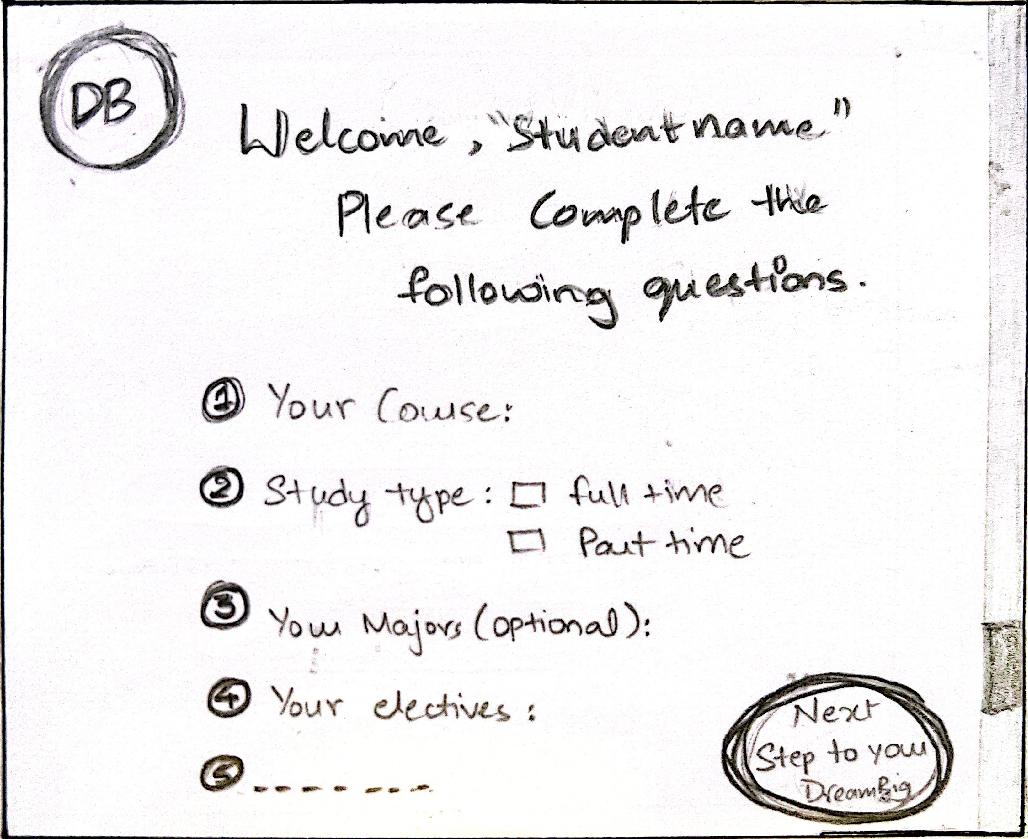 DB
Welcome, "Student name"
Please Complete the
following questions.
1 Your Course:
2 Study type: full time
Part time
3 Your Majors (optional):
4 Your electives:
5 -------
Next
Step to your
DreamBig